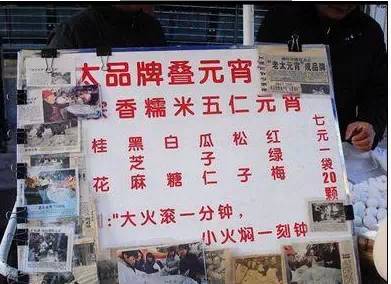 太品牌叠元宵
香糯米五仁元宵
桂花
黑芝麻
白糖
瓜子仁
松子
红绿梅
七元一袋20颗
:"大火滚一分钟,
小火焖一刻钟
"老太元宵"成品牌